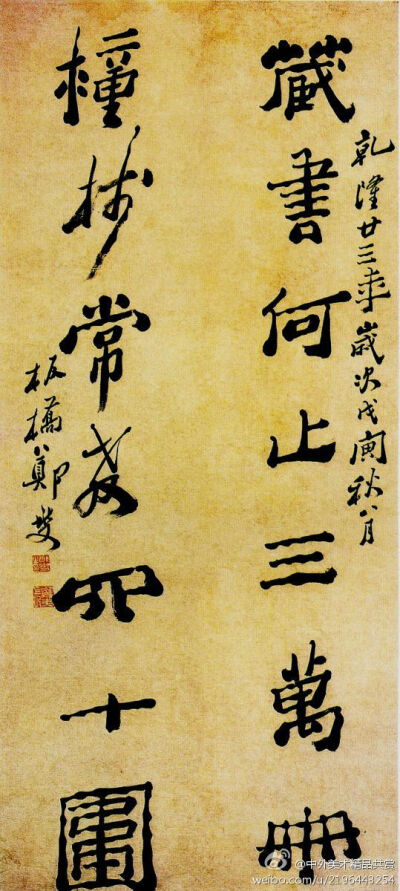 乾隆廿三年歲次戊寅秋八月
藏書何止三萬冊
種樹常教四十圍
板橋鄭燮
@中外美术精品共赏
weibo.com/u/2196448254